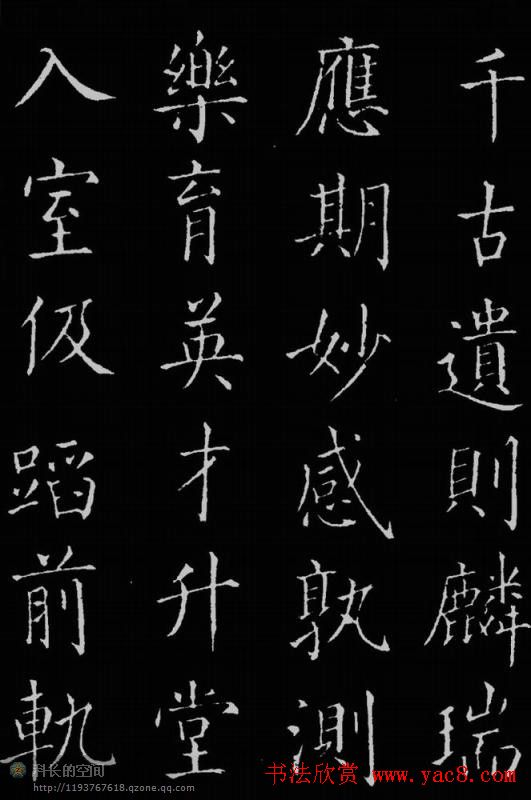 千古遺則麟瑞
應期妙感孰測
樂育英才升堂
入室伋蹈前軌
科长的空间
http://1193767618.qzone.qq.com
书法欣赏 www.yac8.com